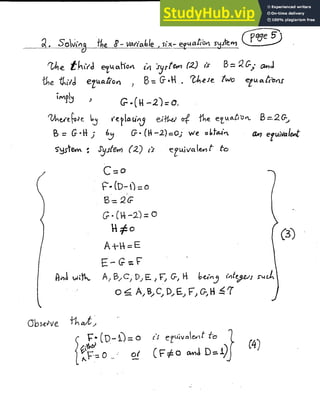 StudyHub.vip
Experienced writers
Delivery on time
100% plagiarism free
page 5
2. Solving the 8-variable, six-equation system
The third equation in system (2) is B=2G; and
the third equation, B=G·H. These two equations
imply, G·(H-2)=0.
Therefore by replacing either of the equation B=2G,
B=G·H; by G·(H-2)=0; we obtain an equivalent
system: System (2) is equivalent to
C=0
F·(D-1)=0
B=2G
G·(H-2)=0
H≠0
A+H=E
E-G=F
(3)
And with A, B, C, D, E, F, G, H being integers such
0≤A, B, C, D, E, F, G, H≤7
Observe that,
F·(D-1)=0 is equivalent to
either F=0 or (F≠0 and D=1)
(4)